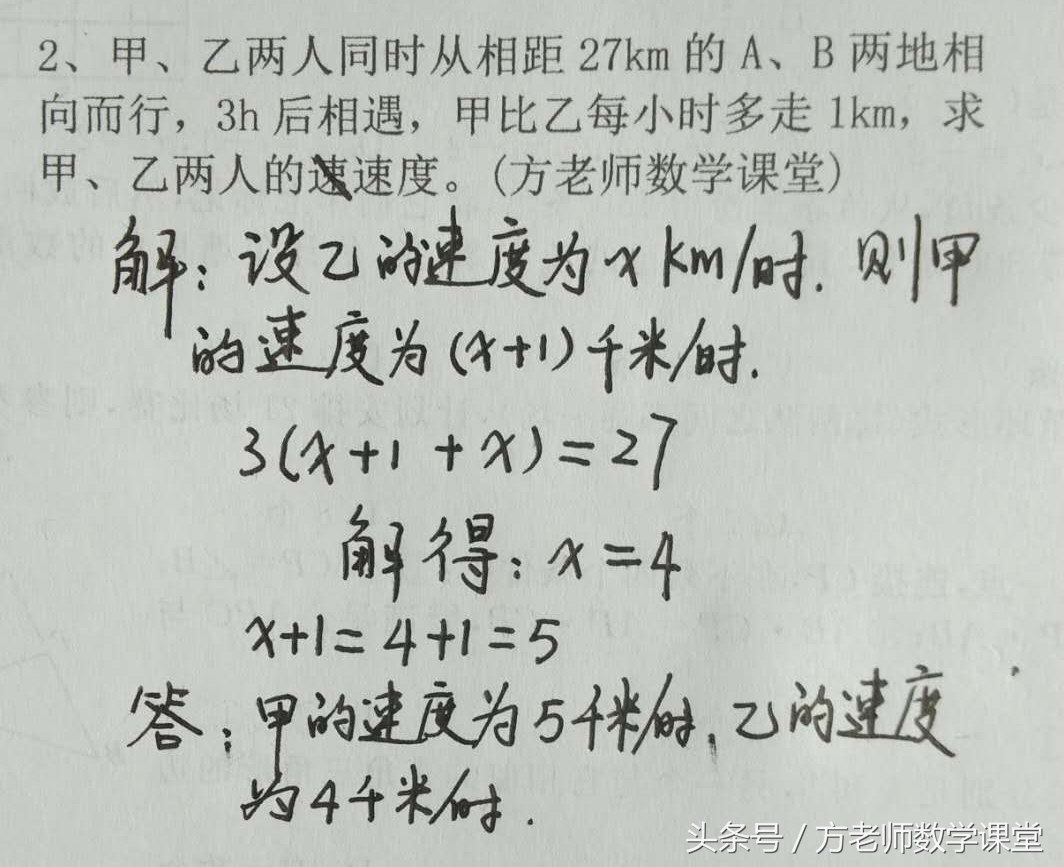 2、甲、乙两人同时从相距 27km 的 A、B 两地相
向而行，3h 后相遇，甲比乙每小时多走 1km，求
甲、乙两人的速速度。(方老师数学课堂)
解：设乙的速度为 x km/时. 则甲
的速度为(x+1)千米/时.
3(x+1+x)=27
解得：x=4
x+1=4+1=5
答：甲的速度为5千米/时，乙的速度
为4千米/时.
头条号 / 方老师数学课堂